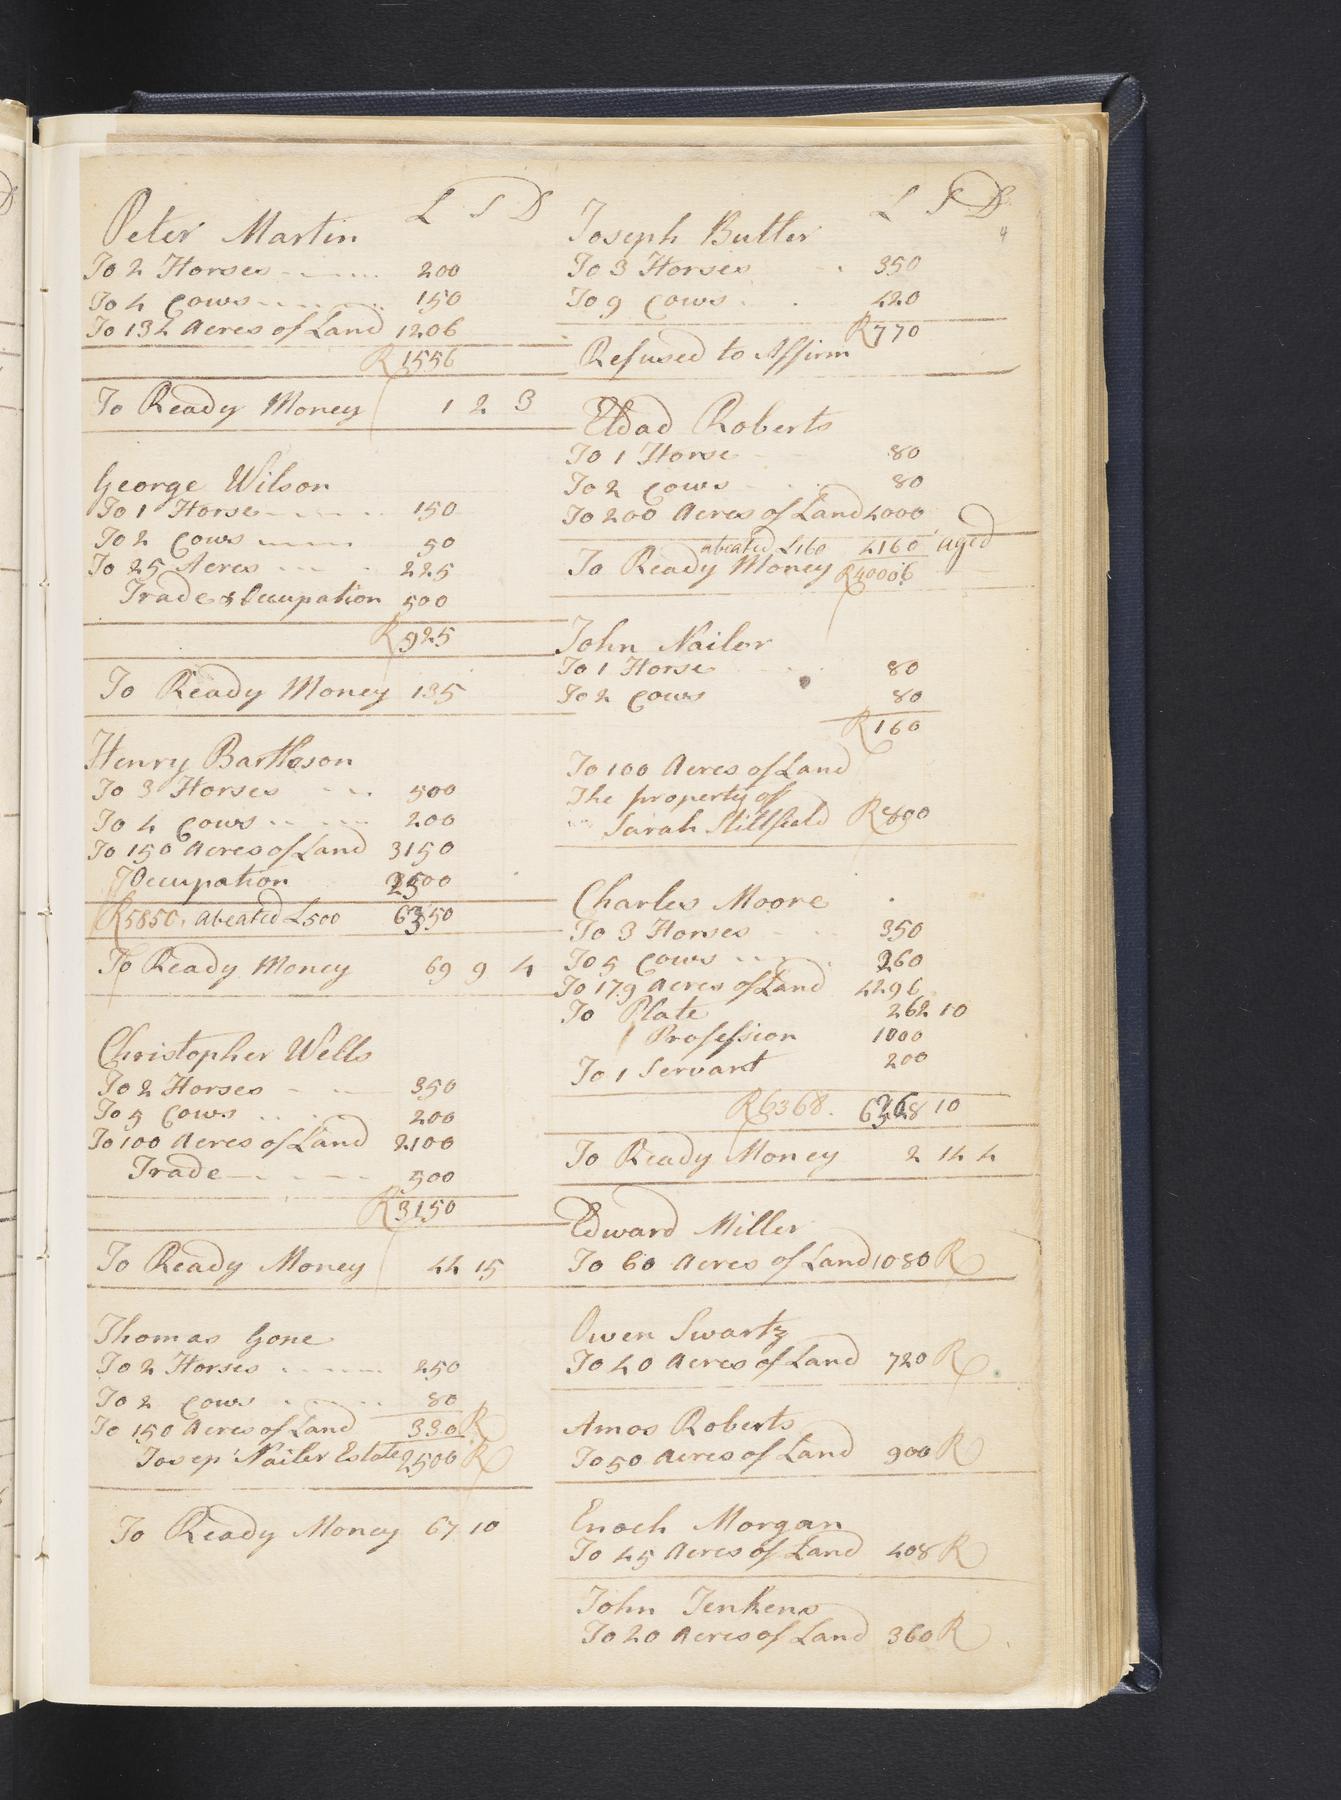 L S D
Peter Martin
To 2 Horses 200
To 4 Cows 150
To 134 Acres of Land 1206
R 1556
To Ready Money 1 2 3
George Wilson
To 1 Horse 150
To 2 Cows 50
To 25 Acres 225
Trade & Occupation 500
R 925
To Ready Money 135
Henry Bartleson
To 3 Horses 500
To 4 Cows 200
To 150 Acres of Land 3150
Occupation 2500
R 5850. abeated £500 6350
To Ready Money 69 9 4
Christopher Wells
To 2 Horses 350
To 5 Cows 200
To 100 Acres of Land 2100
Trade 500
R 3150
To Ready Money 44 15
Thomas Gone
To 2 Horses 250
To 2 Cows 80
To 150 Acres of Land 330 R
Josep Nailer Estate 2500 R
To Ready Money 67 10
L S D
4
Joseph Butler
To 3 Horses 350
To 9 Cows 420
R 770
Refused to Affirm
Eldad Roberts
To 1 Horse 80
To 2 Cows 80
To 200 Acres of Land 4000
abeated £160 4160 aged
To Ready Money R4000 6
John Nailor
To 1 Horse 80
To 2 Cows 80
R 160
To 100 Acres of Land
The property of
Sarah Stillfield R 800
Charles Moore
To 3 Horses 350
To 5 Cows 260
To 179 Acres of Land 4296
To Plate 262 10
Profession 1000
To 1 Servant 200
R 6368. 10
To Ready Money 2 14 4
Edward Miller
To 60 Acres of Land 1080 R
Owen Swartz
To 40 Acres of Land 720 R
Amos Roberts
To 50 Acres of Land 900 R
Enoch Morgan
To 45 Acres of Land 408 R
John Jenkens
To 20 Acres of Land 360 R